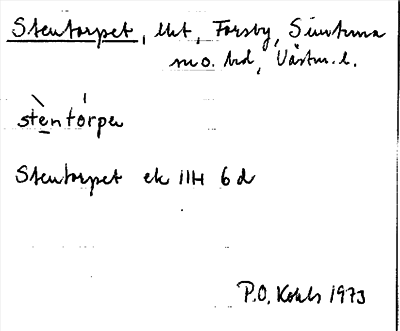 Stentorpet, lht, Forsby, Simtuna
sn o. hd, Västm. l.
stentòrpeṇ
Stentorpet ek 11H 6d
P.O. Kohls 1973